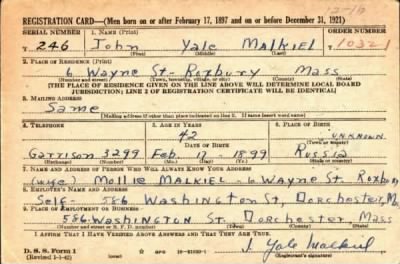 REGISTRATION CARD—(Men born on or after February 17, 1897 and on or before December 31, 1921)
SERIAL NUMBER 1. NAME (Print) ORDER NUMBER
T 246 John Yale MALKIEL 10321
(First) (Middle) (Last)
2. PLACE OF RESIDENCE (Print)
6 Wayne St- Roxbury Mass
(Number and street) (Town, township, village, or city) (County) (State)
[THE PLACE OF RESIDENCE GIVEN ON THE LINE ABOVE WILL DETERMINE LOCAL BOARD
JURISDICTION; LINE 2 OF REGISTRATION CERTIFICATE WILL BE IDENTICAL]
3. MAILING ADDRESS
Same
[Mailing address if other than place indicated on line 2. If same insert word same]
4. TELEPHONE 5. AGE IN YEARS 6. PLACE OF BIRTH
42 UNKNOWN
DATE OF BIRTH (Town or county)
Garrison 3299 Feb. 17 1899 Russia
(Exchange) (Number) (Mo.) (Day) (Yr.) (State or country)
7. NAME AND ADDRESS OF PERSON WHO WILL ALWAYS KNOW YOUR ADDRESS
(wife) Mollie MALKIEL - 6 Wayne St. Roxbury
8. EMPLOYER'S NAME AND ADDRESS
Self- 586 Washington St, Dorchester, M
9. PLACE OF EMPLOYMENT OR BUSINESS
586 Washington St. Dorchester, Mass
(Number and street or R. F. D. number) (Town) (County) (State)
I AFFIRM THAT I HAVE VERIFIED ABOVE ANSWERS AND THAT THEY ARE TRUE.
D. S. S. Form 1
(Revised 1-1-42) GPO J. Yale Malkiel